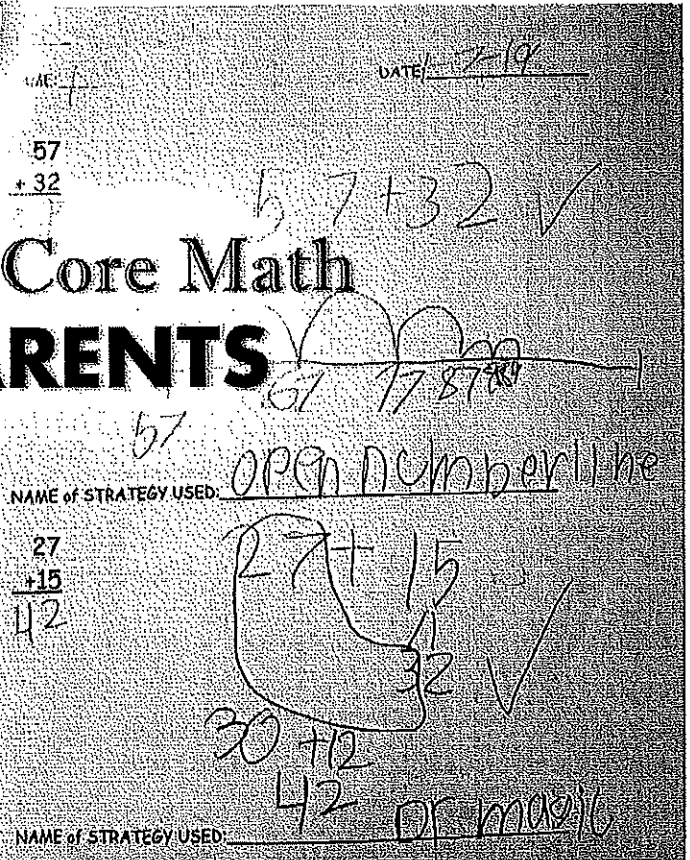 DATE 1-7-19
57
+ 32
57+32 ✓
Core Math
RENTS
67 77 87
57
NAME of STRATEGY USED: open numberline
27
+15
42
27+ 15
32 ✓
30 +12
42
NAME of STRATEGY USED: Dr magic